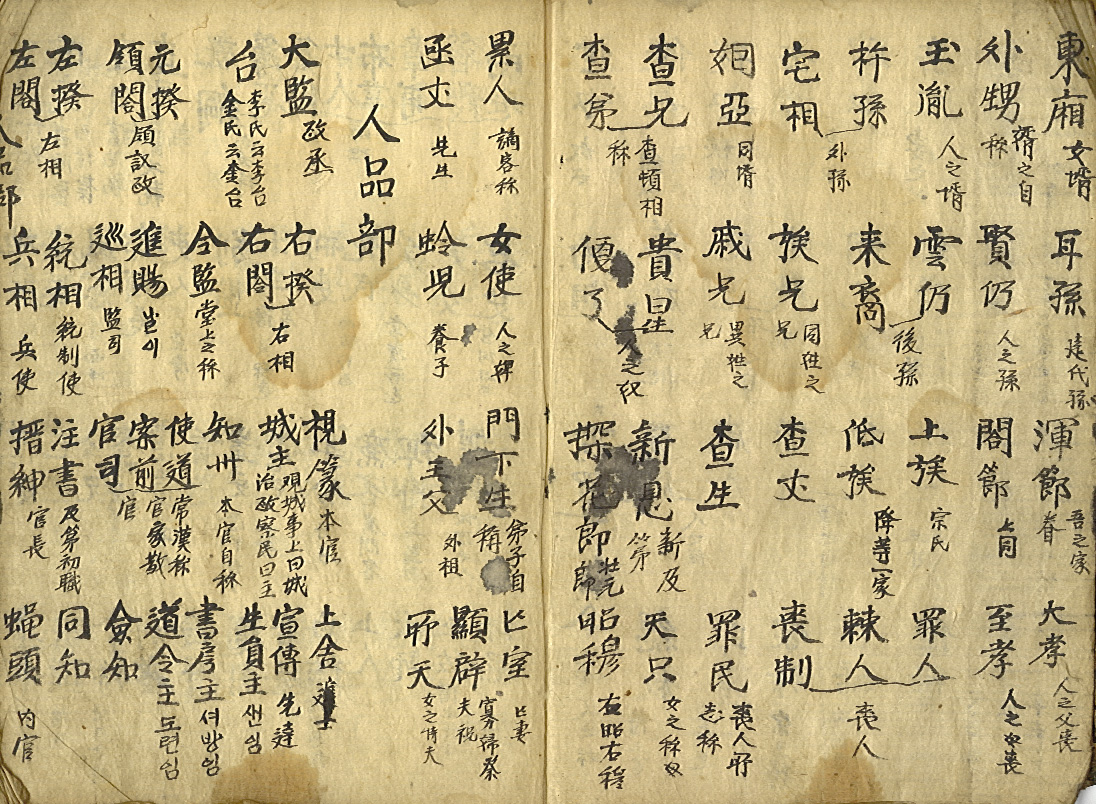 東廂 女壻
耳孫
渾節 吾之家眷
大孝 人之父喪
外甥 壻之自称
賢仍 人之孫
閤節 上同
至孝 人之喪
玉胤 人之壻
雲仍
上族 宗民
罪人
杵孫
来裔 後孫
低族 降等一家
棘人 喪人
宅相 外孫
族兄 同姓之兄
查丈
喪制
姻亞 同壻
戚兄 異姓之兄
查生
罪民 喪人所志称
查兄
貴星
新恩 新及第
天只 女之称母
查弟 查頓相称
優了 人之奴
探花郎 壯元郎
昭穆 右昭右穆
累人 謫客称
女使 人之婢
門下生 弟子自称
亡室 亡妻
函丈 先生
蛉児 養子
外王父 外祖
顯辟 寡婦祭夫祝
所天 女之待夫
人品部
大監 政丞
右揆
視篆 本官
上舍 進士
台 李氏云李台 金氏云金台
右閤 右相
城主 观城事上曰城 治政察民曰主
宣傳 先達
元揆
令監 堂上之称
知州 本官自称
生員主 샌님
領閤 領議政
進賜 나이
使道 常漢称
書房主 셔방임
左揆
巡相 監司
案前 官家数官
道令主 도련임
左閤 左相
統相 統制使
官司
僉知
兵相 兵使
注書 及第初職
同知
搢紳 官長
蝇頭 内官
人品部